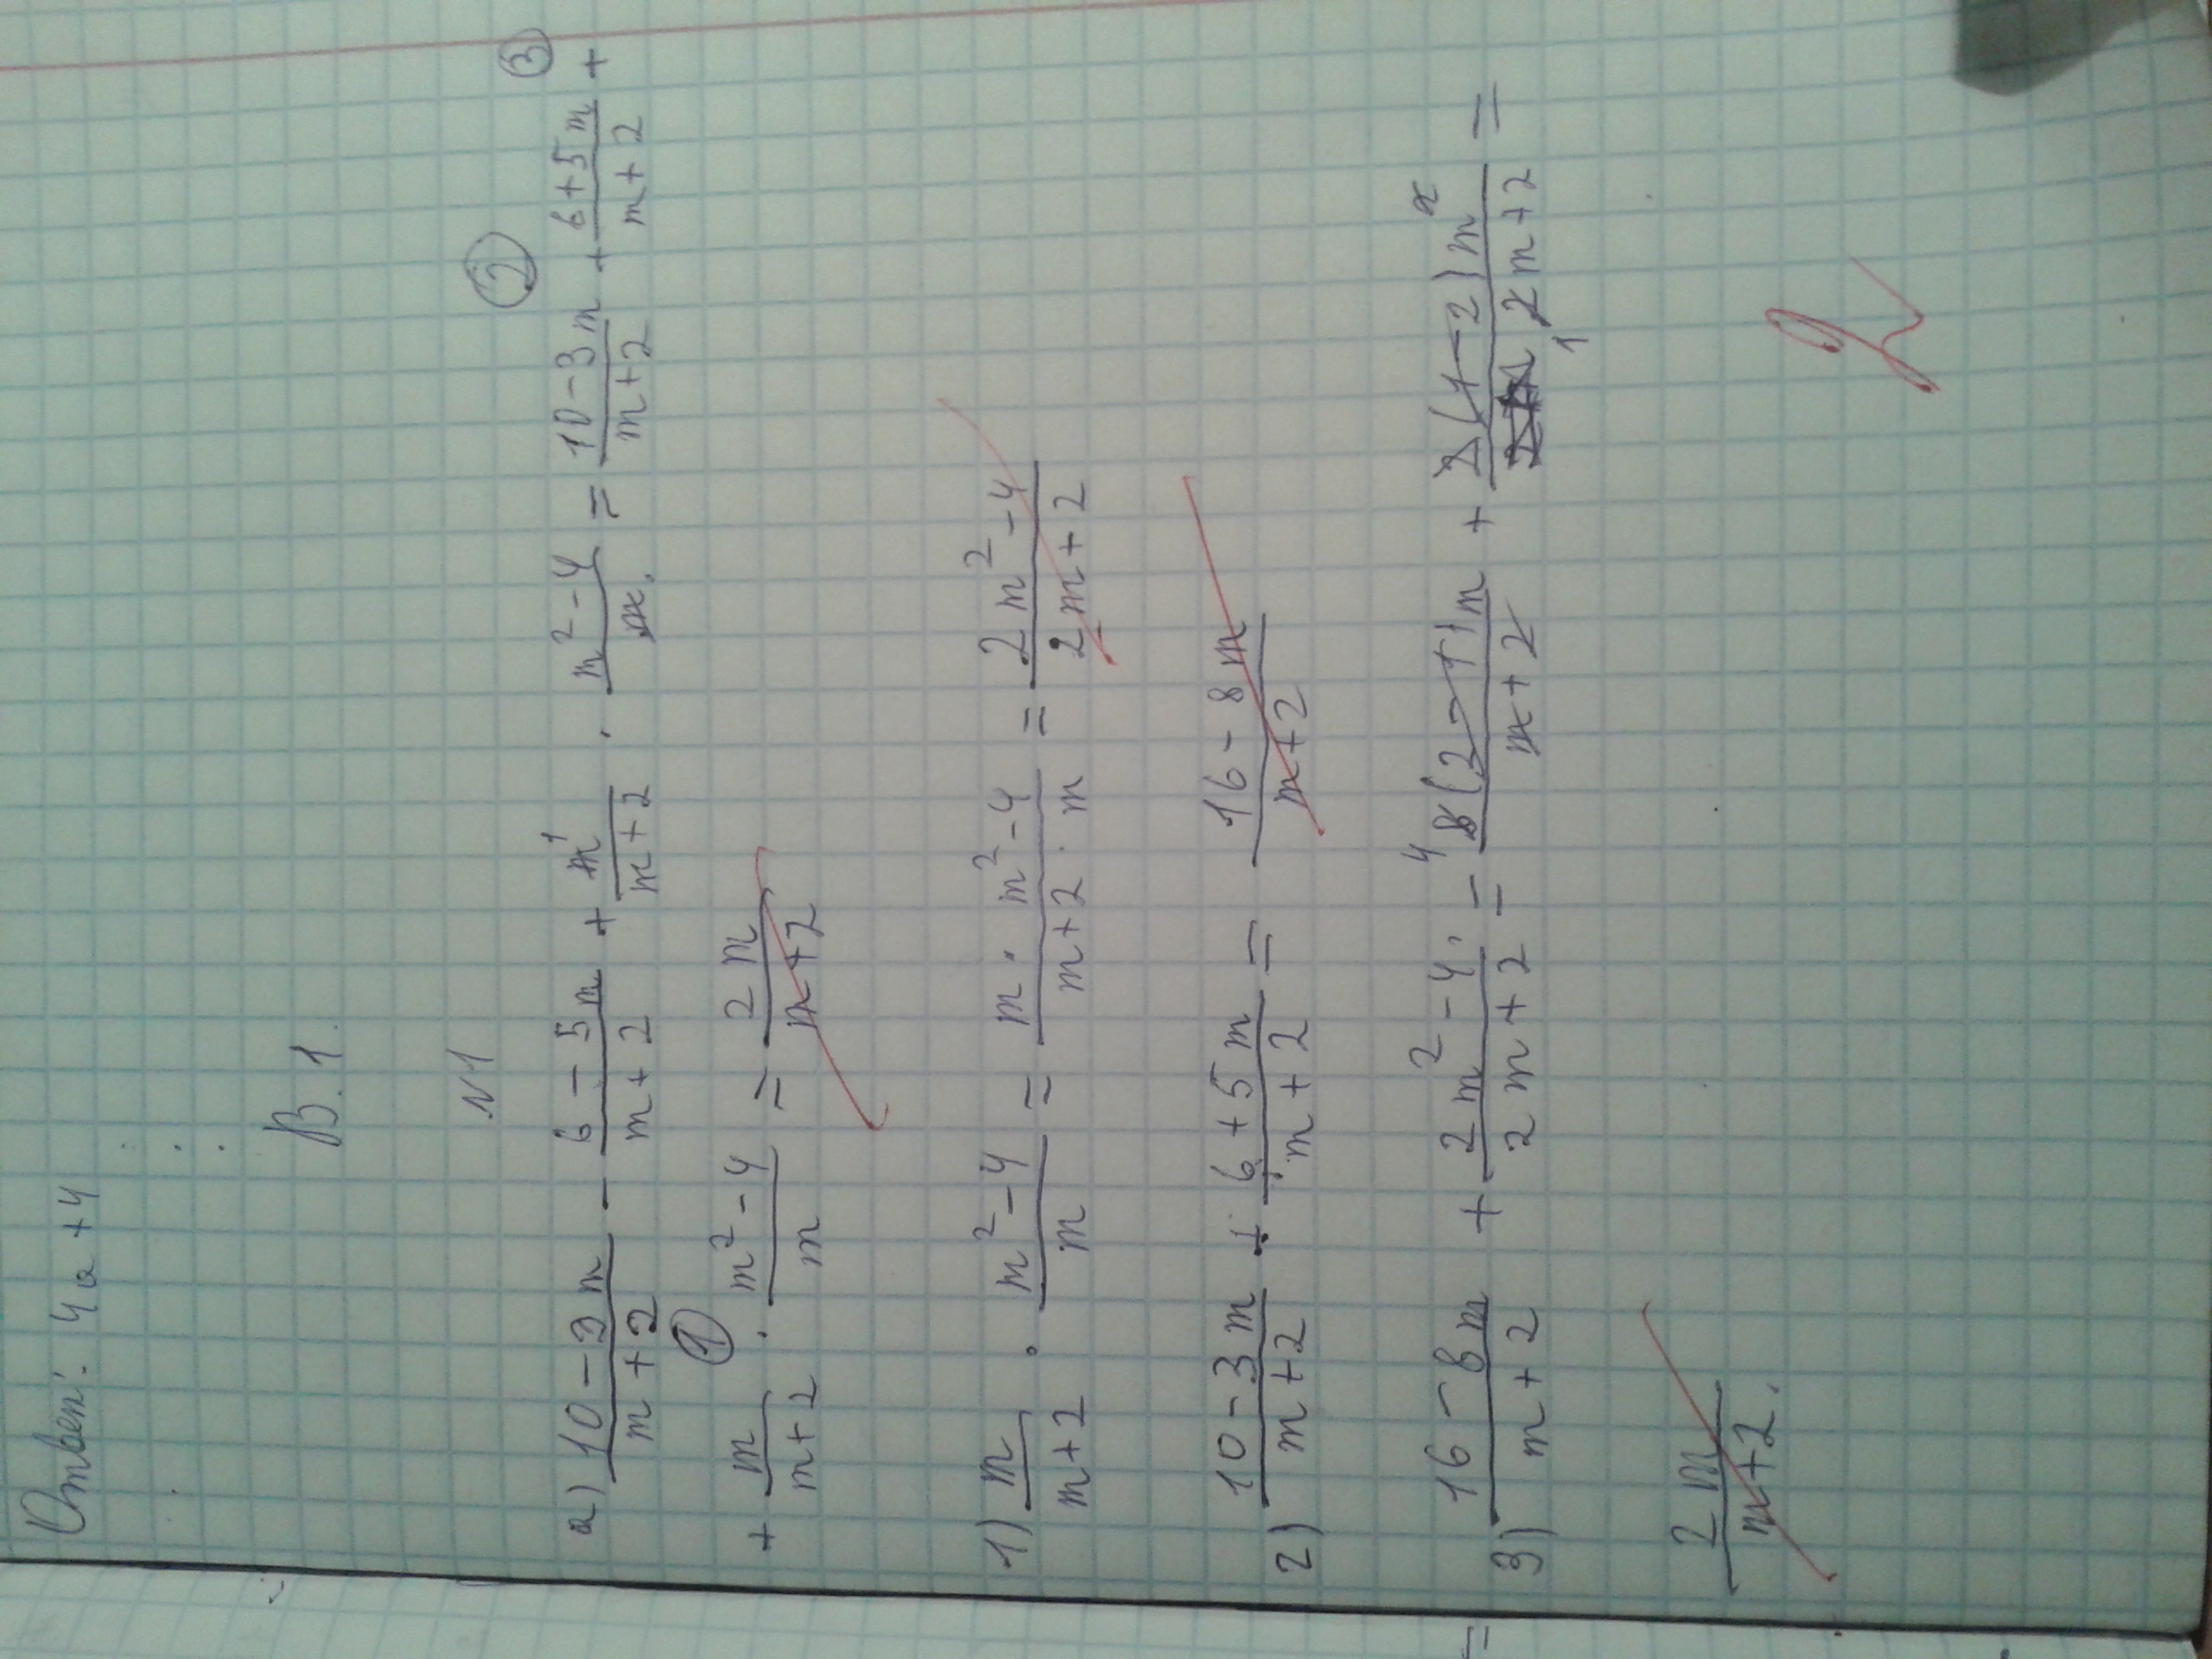 Ответ: 4a + 4
В. 1.
N1
a) (10 - 3m)/(m + 2) - (6 - 5m)/(m + 2) + m¹/(m + 2) · (m² - 4)/m. = (10 - 3m)/(m + 2) + ② (6 + 5m)/(m + 2) + ③
+ m/(m + 2) ① · (m² - 4)/m = 2m/(m + 2)
1) m/(m + 2) · (m² - 4)/m = (m · m² - 4)/(m + 2 · m) = (2m² - 4)/(2m + 2)
2) (10 - 3m)/(m + 2) + (6 + 5m)/(m + 2) = (16 - 8m)/(m + 2)
3) (16 - 8m)/(m + 2) + (2m² - 4)/(2m + 2) = ⁴8(2 - 1)m/(m + 2) + 2(1 - 2)m/(2m + 2) =
= 2m/(m + 2).
2